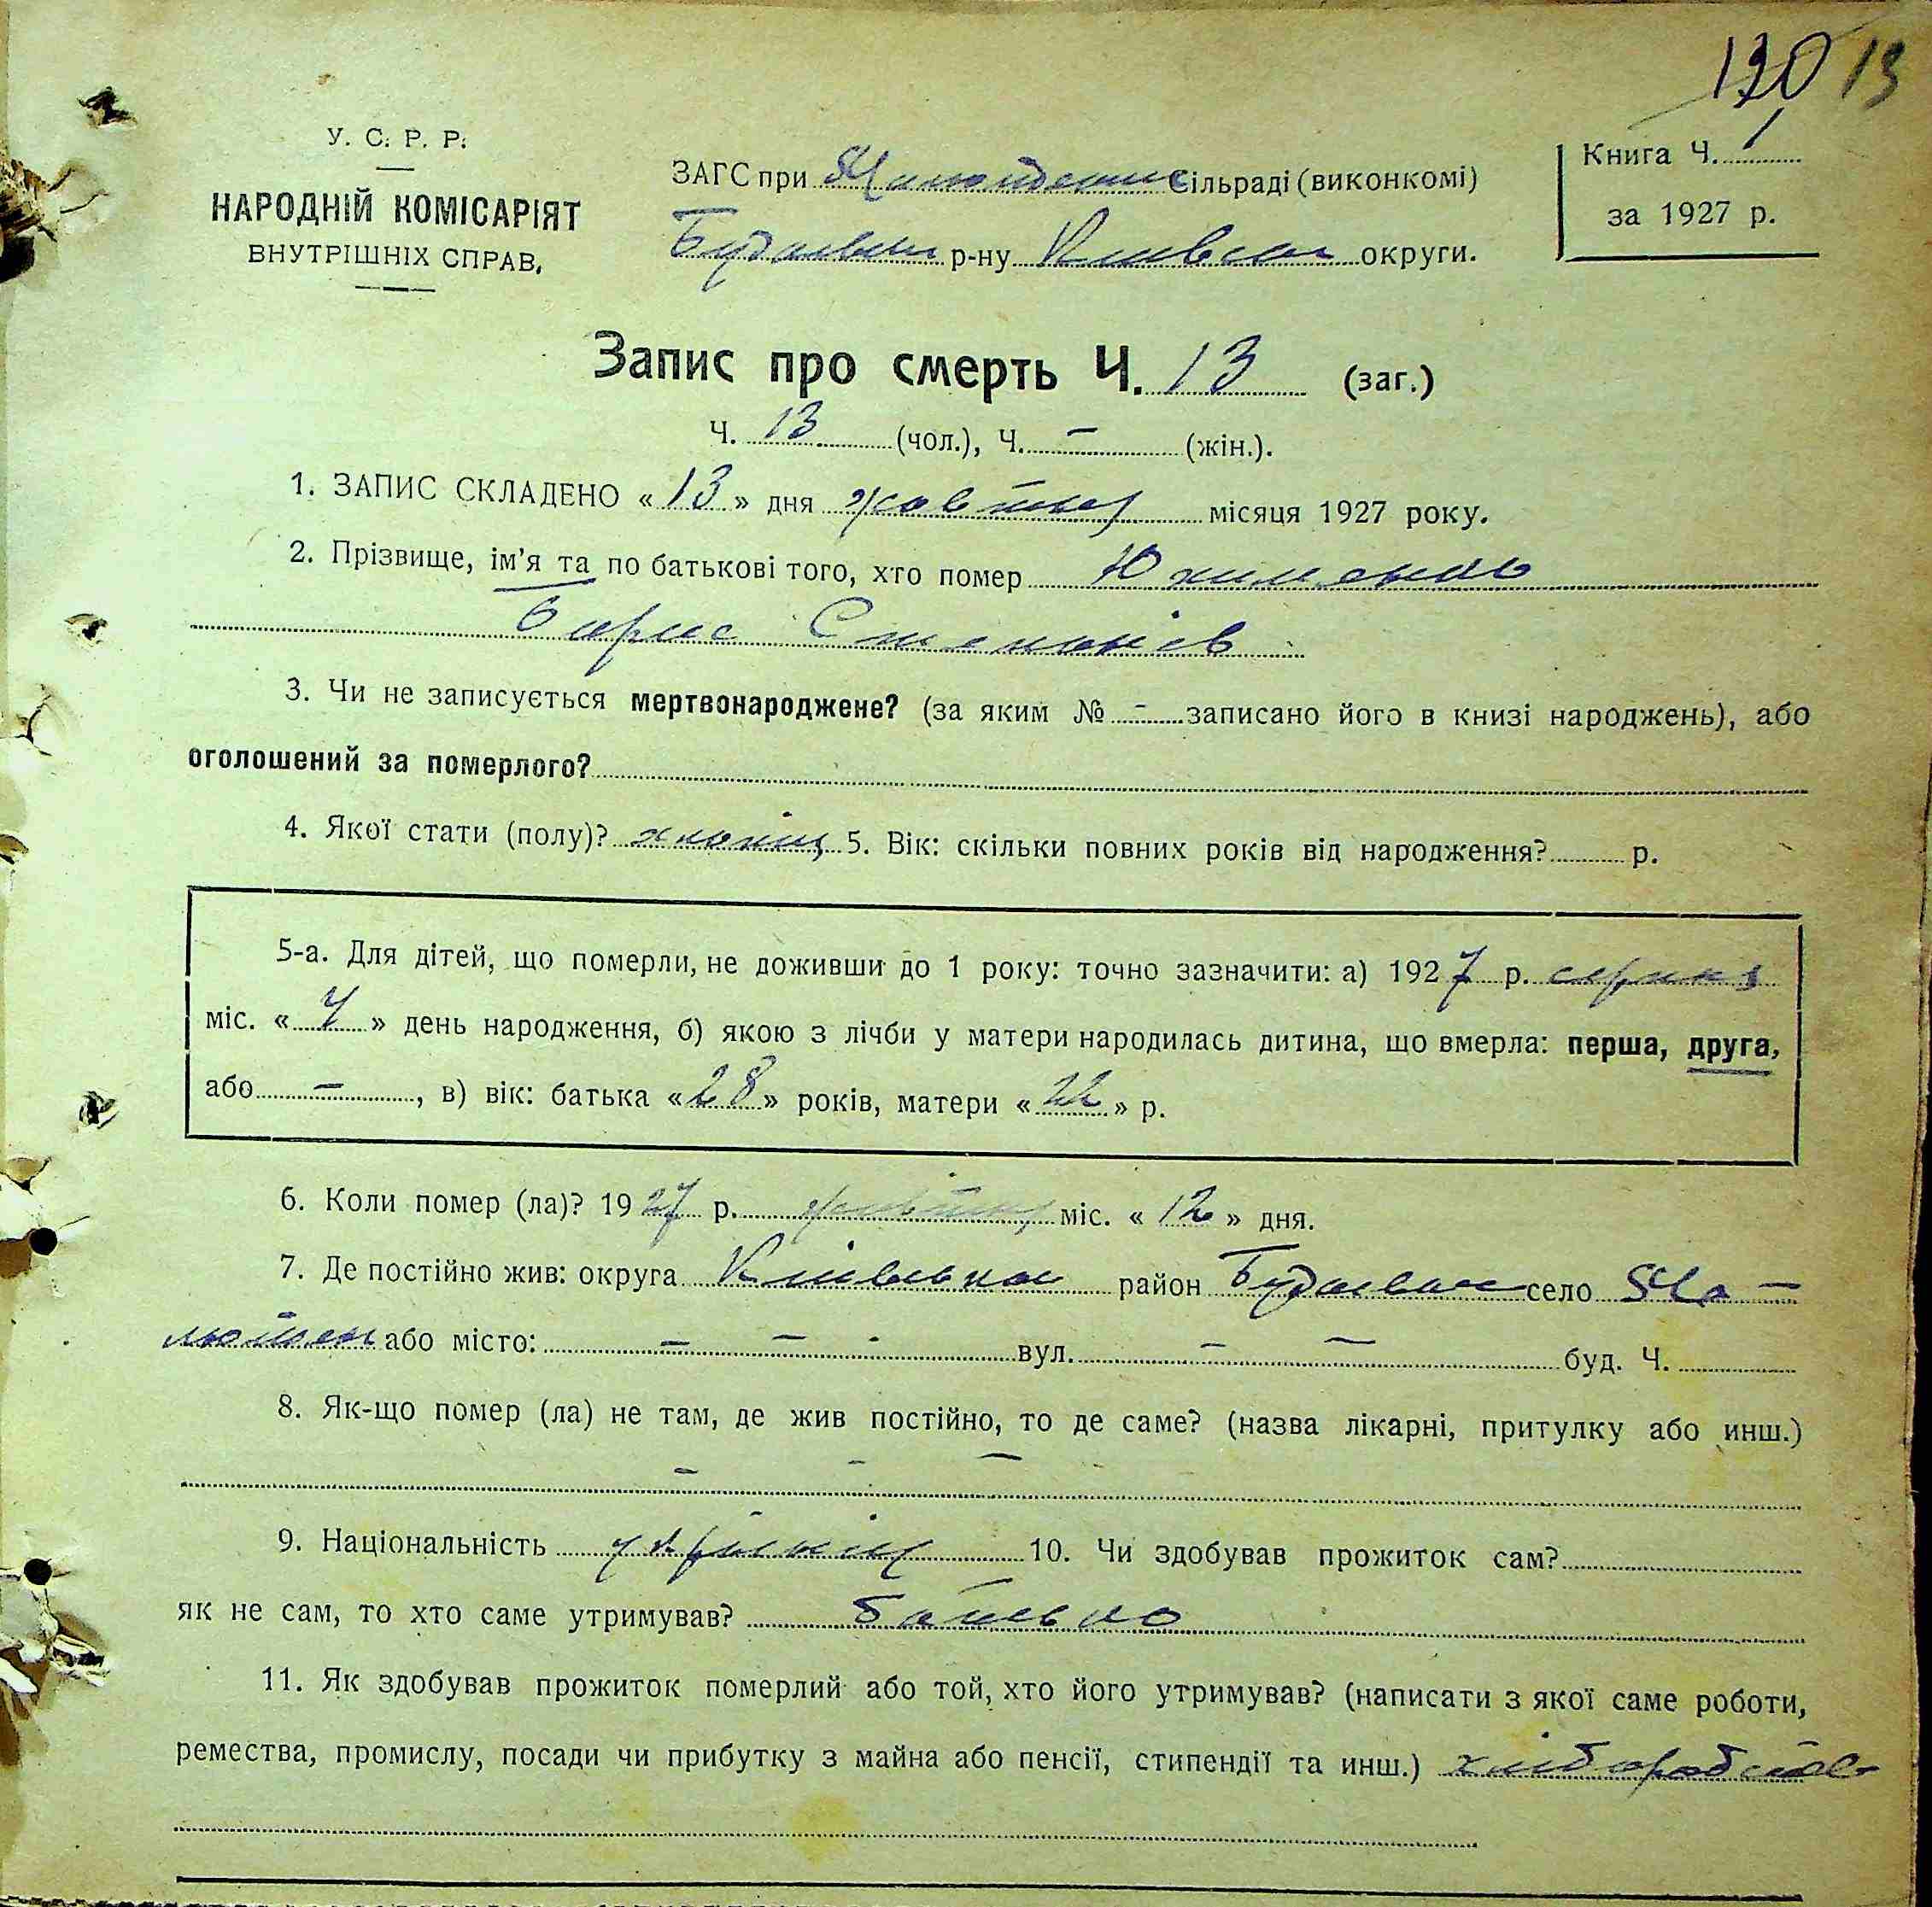 130 13
У. С. Р. Р.
НАРОДНІЙ КОМІСАРІЯТ
ВНУТРІШНІХ СПРАВ.
ЗАГС при Сільраді (виконкомі)
р-ну округи.
Книга Ч. 1
за 1927 р.
Запис про смерть Ч. 13 (заг.)
Ч. 13 (чол.), Ч. – (жін.).
1. ЗАПИС СКЛАДЕНО « 13 » дня жовтня місяця 1927 року.
2. Прізвище, ім'я та по батькові того, хто помер Юхименко
Борис Степанів
3. Чи не записується мертвонароджене? (за яким № - записано його в книзі народжень), або
оголошений за померлого?
4. Якої стати (полу)? хлопець 5. Вік: скільки повних років від народження? р.
5-а. Для дітей, що померли, не доживши до 1 року: точно зазначити: а) 1927 р. серпня
міс. « » день народження, б) якою з лічби у матери народилась дитина, що вмерла: перша, друга,
або – , в) вік: батька « 28 » років, матери « 22 » р.
6. Коли помер (ла)? 1927 р. жовтня міс. « 12 » дня.
7. Де постійно жив: округа Київська район село
або місто: – – вул. – – буд. Ч.
8. Як-що помер (ла) не там, де жив постійно, то де саме? (назва лікарні, притулку або инш.)
– – –
9. Національність 10. Чи здобував прожиток сам?
як не сам, то хто саме утримував? батько
11. Як здобував прожиток померлий або той, хто його утримував? (написати з якої саме роботи,
ремества, промислу, посади чи прибутку з майна або пенсії, стипендії та инш.)